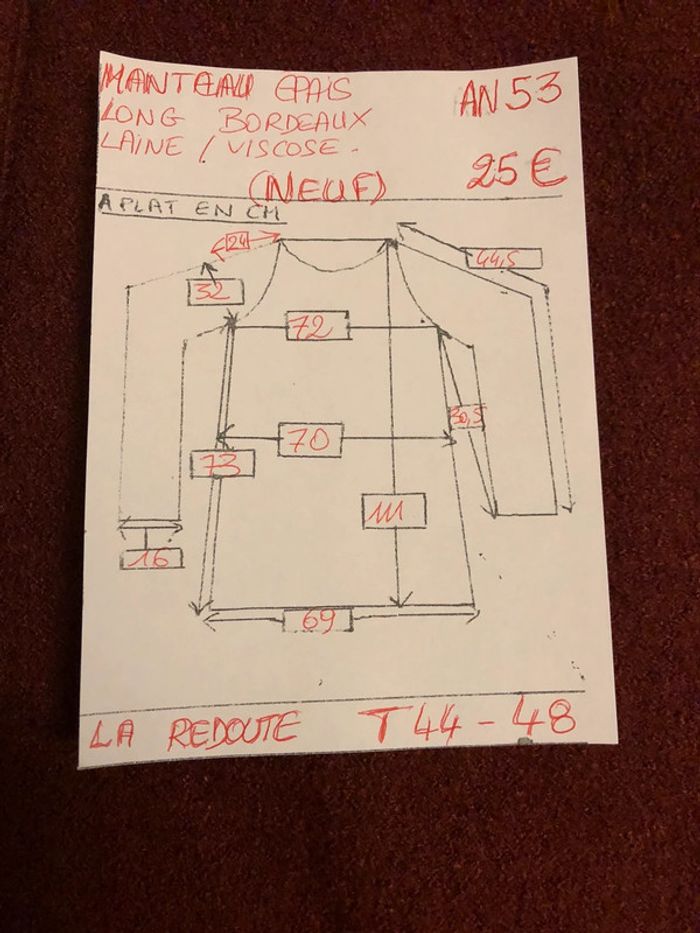 MANTEAU EPAIS
LONG BORDEAUX
LAINE / VISCOSE.
(NEUF)
AN 53
25 €
A PLAT EN CM
24
44,5
32
72
30,5
70
73
111
16
69
LA REDOUTE T 44 - 48